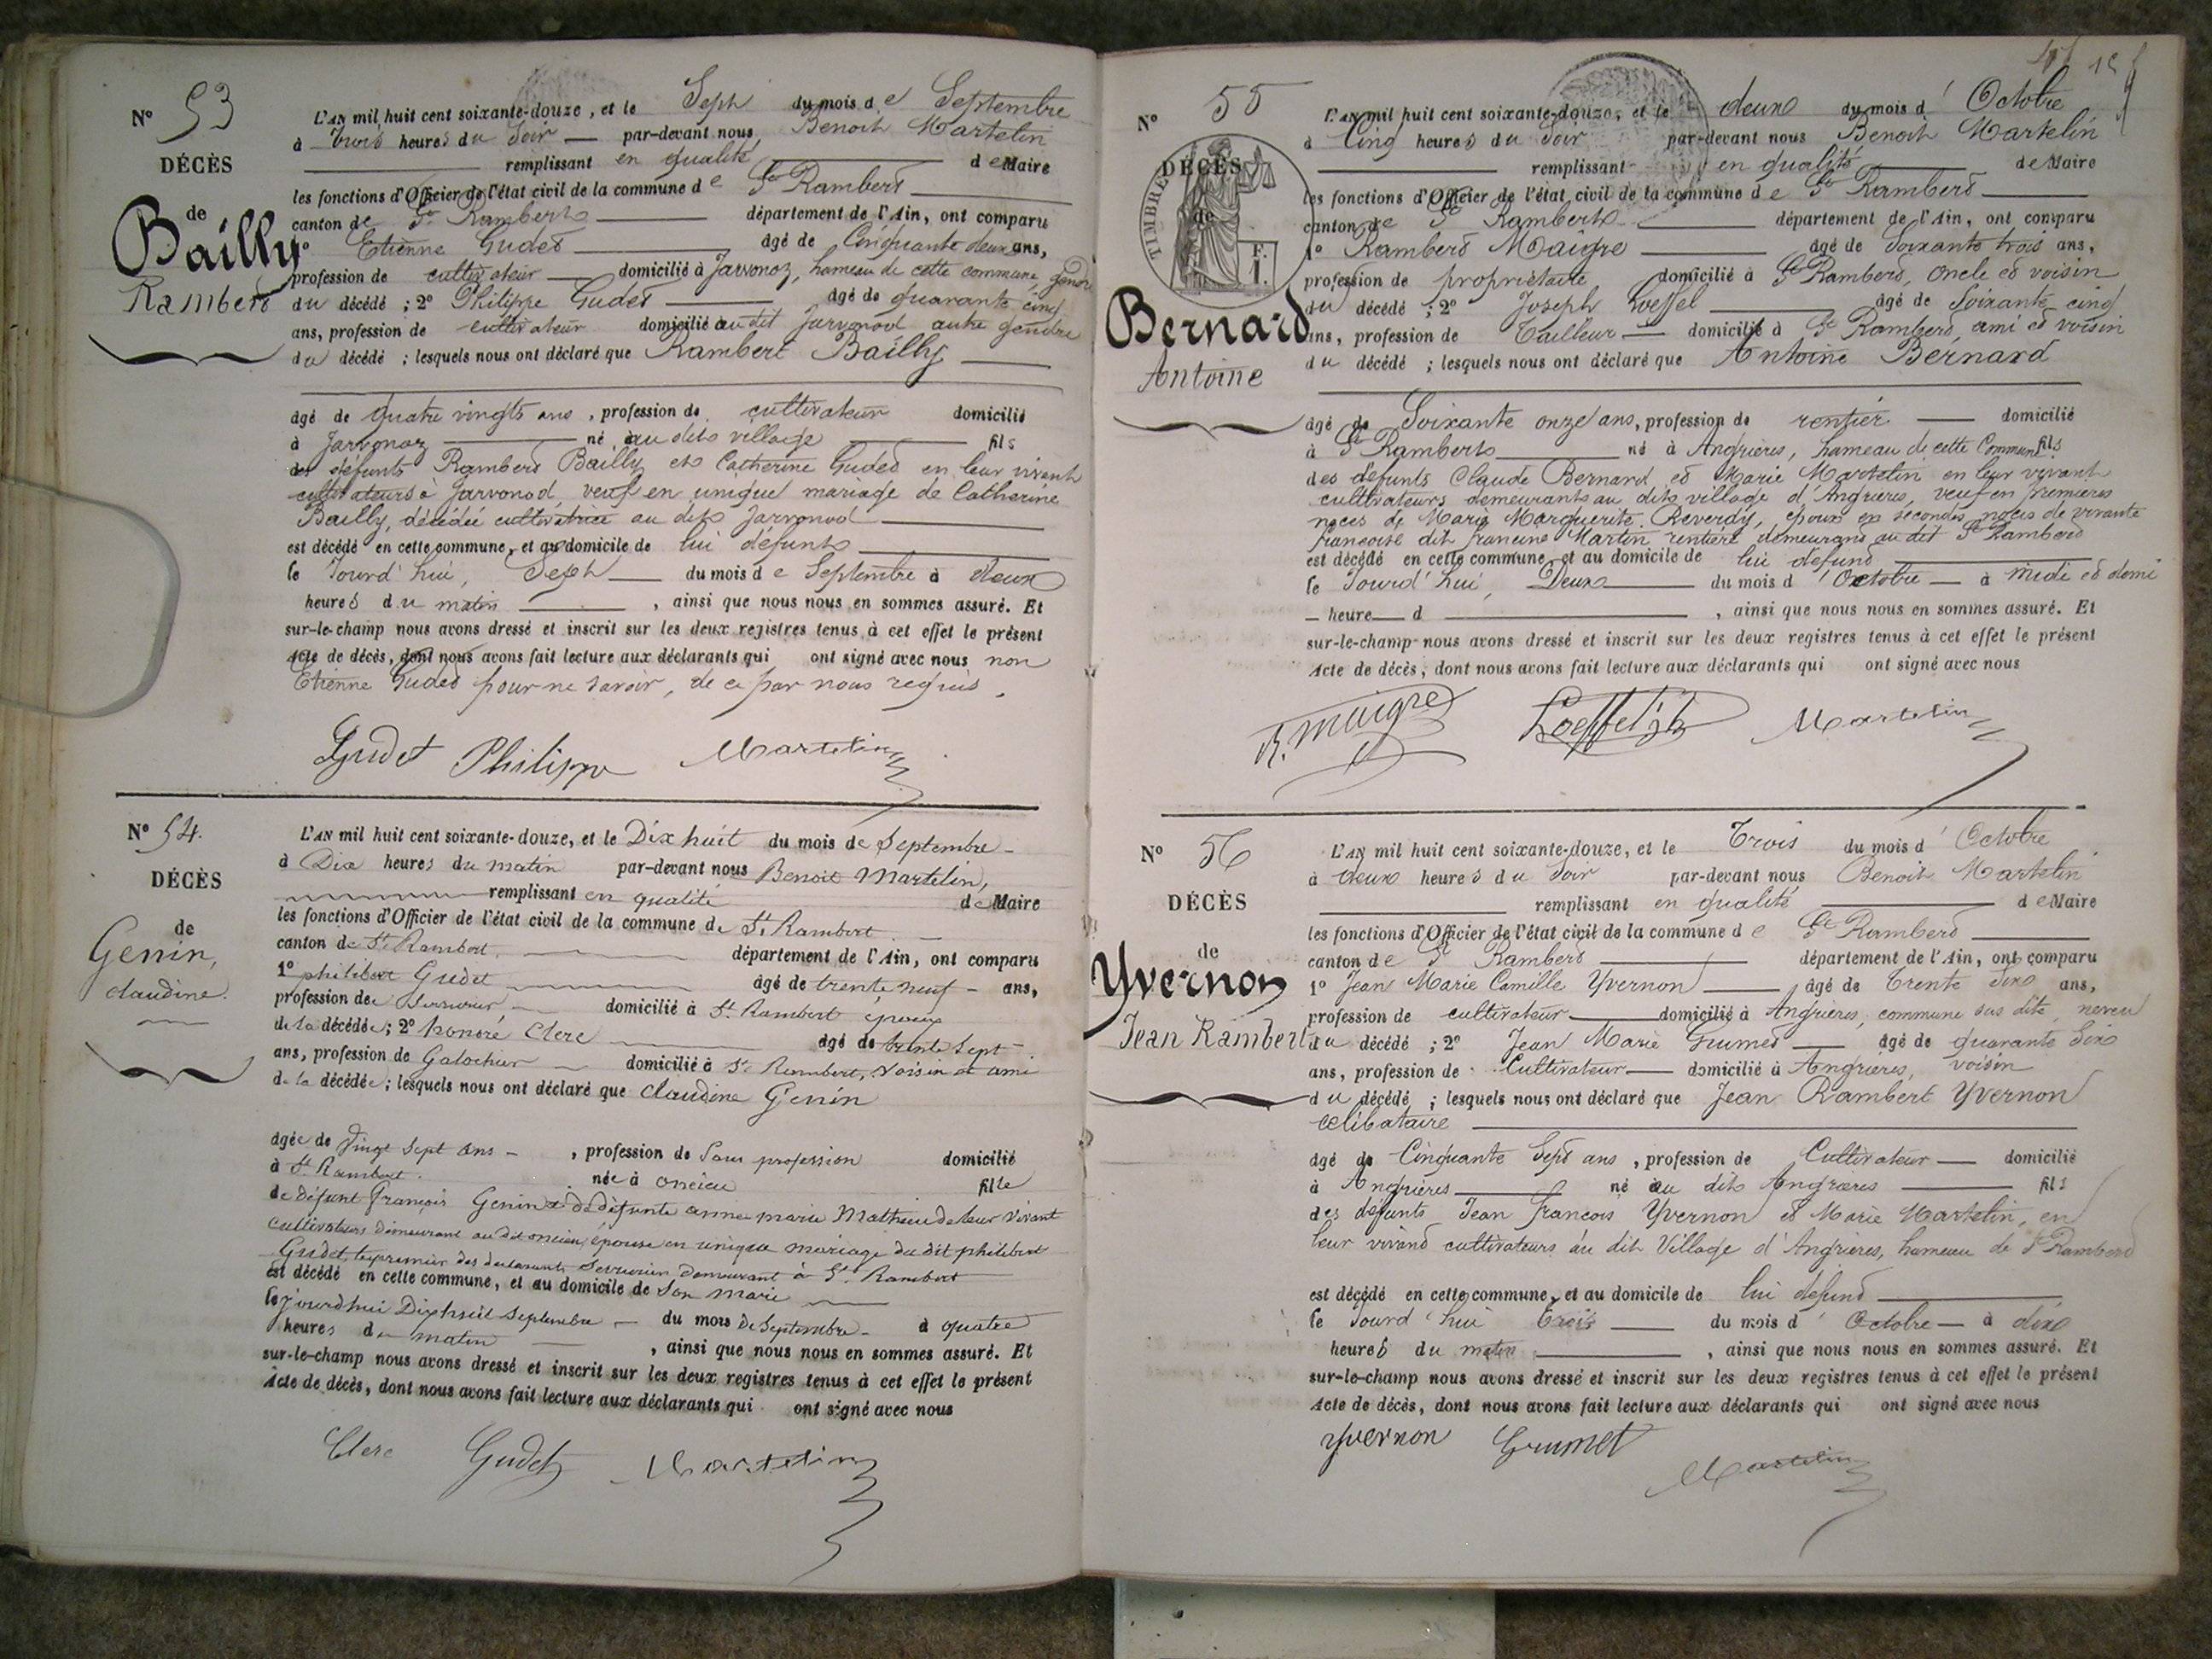 N° 53
DÉCÈS
de
Bailly
Rambert
L'AN mil huit cent soixante-douze, et le Sept du mois de Septembre
à trois heures du Soir par-devant nous Benoit Martelin
remplissant en qualité de Maire
les fonctions d'Officier de l'état civil de la commune de St Rambert
canton de St Rambert département de l'Ain, ont comparu
1° Etienne Gudet âgé de Cinquante deux ans,
profession de cultivateur domicilié à Jarvonoz, hameau de cette commune, gendre
du décédé ; 2° Philippe Gudet âgé de quarante cinq
ans, profession de cultivateur domicilié au dit Jarvonod autre gendre
du décédé ; lesquels nous ont déclaré que Rambert Bailly
âgé de quatre vingts ans, profession de cultivateur domicilié
à Jarvonoz né au dit village fils
des défunts Rambert Bailly et Catherine Gudet en leur vivant
cultivateurs à Jarvonod, veuf en unique mariage de Catherine
Bailly, décédée cultivatrice au dit Jarvonod
est décédé en cette commune, et au domicile de lui défunt
le Jourd'hui, Sept du mois de Septembre à deux
heures du matin, ainsi que nous nous en sommes assuré. Et
sur-le-champ nous avons dressé et inscrit sur les deux registres tenus à cet effet le présent
Acte de décès, dont nous avons fait lecture aux déclarants qui ont signé avec nous non
Etienne Gudet pour ne savoir, de ce par nous requis.
Gudet Philippe Martelin
N° 54.
DÉCÈS
de
Genin,
claudine.
L'AN mil huit cent soixante-douze, et le Dix huit du mois de Septembre
à Dix heures du matin par-devant nous Benoit Martelin,
remplissant en qualité de Maire
les fonctions d'Officier de l'état civil de la commune de St Rambert
canton de St Rambert. département de l'Ain, ont comparu
1° philibert Gudet âgé de trente neuf ans,
profession de Serrurier domicilié à St Rambert époux
de la décédée; 2° honoré Clerc âgé de trente sept
ans, profession de Galochier domicilié à St Rambert, voisin et ami
de la décédée; lesquels nous ont déclaré que claudine Genin
âgée de Vingt Sept ans, profession de Sans profession domicilié
à St Rambert. née à oncieu fille
de défunt françois Genin et de défunte anne marie Mathieu de leur vivant
cultivateurs demeurant au dit oncieu, épouse en unique mariage du dit philibert
Gudet, le premier des declarants Serrurier demeurant à St Rambert
est décédé en cette commune, et au domicile de son marie
le jourdhui Dix huit Septembre du mois de Septembre à quatre
heures du matin, ainsi que nous nous en sommes assuré. Et
sur-le-champ nous avons dressé et inscrit sur les deux registres tenus à cet effet le présent
Acte de décès, dont nous avons fait lecture aux déclarants qui ont signé avec nous
Clerc Gudet Martelin
N° 55
TIMBRE
F.
1.
DÉCÈS
de
Bernard
Antoine
L'AN mil huit cent soixante-douze, et le deux du mois d'Octobre
à Cinq heures du Soir par-devant nous Benoit Martelin
remplissant en qualité de Maire
les fonctions d'Officier de l'état civil de la commune de St Rambert
canton de St Rambert département de l'Ain, ont comparu
1° Rambert Maigre âgé de Soixante trois ans,
profession de propriétaire domicilié à St Rambert, oncle et voisin
du décédé ; 2° Joseph Loeffel âgé de Soixante cinq
ans, profession de Tailleur domicilié à St Rambert, ami et voisin
du décédé ; lesquels nous ont déclaré que Antoine Bernard
âgé de Soixante onze ans, profession de rentier domicilié
à St Rambert né à Angrières, hameau de cette Commune fils
des défunts Claude Bernard et Marie Martelin en leur vivant
cultivateurs demeurant au dit village d'Angrières, veuf en premières
noces de Marie Marguerite Reverdy, époux en secondes noces de vivante
françoise dit francine Martin rentière demeurant au dit St Rambert
est décédé en cette commune, et au domicile de lui défunt
le Jourd'hui, Deux du mois d'Octobre à midi et demi
heure d, ainsi que nous nous en sommes assuré. Et
sur-le-champ nous avons dressé et inscrit sur les deux registres tenus à cet effet le présent
Acte de décès, dont nous avons fait lecture aux déclarants qui ont signé avec nous
R. Maigre Loeffel Martelin
N° 56
DÉCÈS
de
Yvernon
Jean Rambert
L'AN mil huit cent soixante-douze, et le Trois du mois d'Octobre
à deux heures du Soir par-devant nous Benoit Martelin
remplissant en qualité de Maire
les fonctions d'Officier de l'état civil de la commune de St Rambert
canton de St Rambert département de l'Ain, ont comparu
1° Jean Marie Camille Yvernon âgé de Trente Six ans,
profession de cultivateur domicilié à Angrières, commune sus dite, neveu
du décédé ; 2° Jean Marie Grumet âgé de quarante Six
ans, profession de Cultivateur domicilié à Angrières, voisin
du décédé ; lesquels nous ont déclaré que Jean Rambert Yvernon
célibataire
âgé de Cinquante Sept ans, profession de Cultivateur domicilié
à Angrières né au dit Angrières fils
des défunts Jean françois Yvernon et Marie Martelin, en
leur vivant cultivateurs au dit Village d'Angrières, hameau de St Rambert
est décédé en cette commune, et au domicile de lui défunt
le Jourd'hui trois du mois d'Octobre à dix
heures du matin, ainsi que nous nous en sommes assuré. Et
sur-le-champ nous avons dressé et inscrit sur les deux registres tenus à cet effet le présent
Acte de décès, dont nous avons fait lecture aux déclarants qui ont signé avec nous
Yvernon Grumet
Martelin